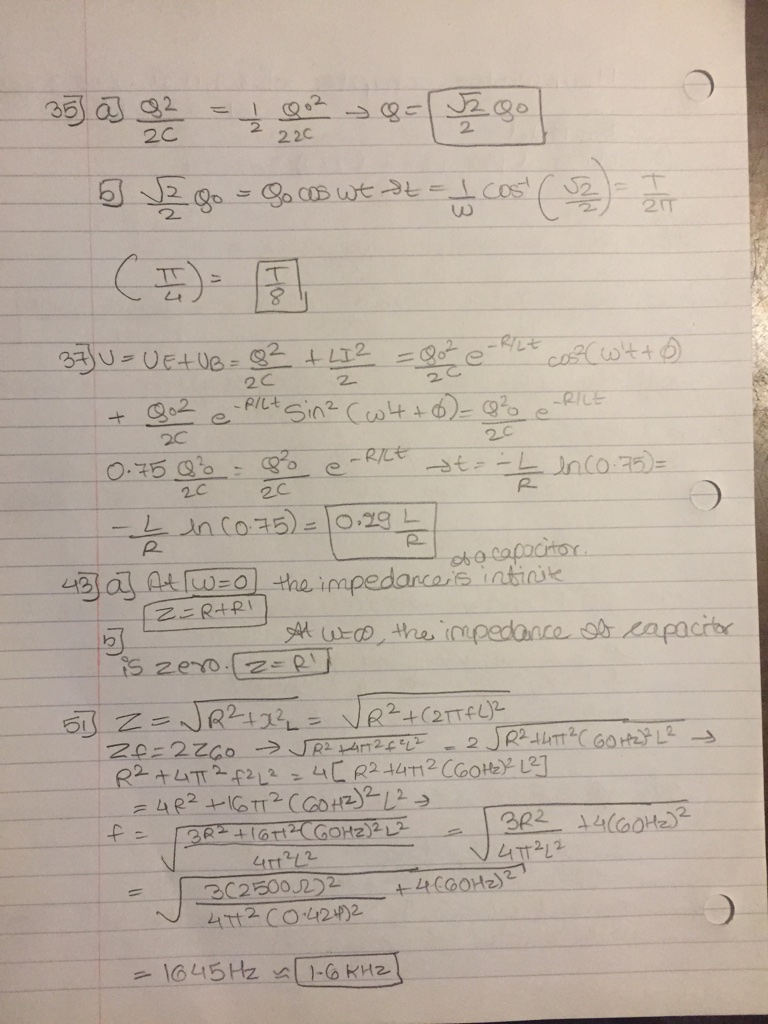 35] a] Q2/2C = 1/2 Q0²/22C → Q = √2/2 Q0
b] √2/2 Q0 = Q0 cos wt → t = 1/w cos⁻¹ (√2/2) = T/2π
(π/4) = T/8
37] U = UE + UB = Q²/2C + LI²/2 = Q0²/2C e^-R/Lt cos²(w't + φ)
+ Q0²/2C e^-R/Lt Sin² (w't + φ) = Q²0/2C e^-R/Lt
0.75 Q²0/2C = Q²0/2C e^-R/Lt → t = -L/R ln(0.75) =
-L/R ln(0.75) = 0.29 L/R
of a capacitor.
43] a] At w=0 the impedance is infinite
Z = R+R'
b] At w=∞, the impedance of capacitor
is zero. Z = R'
51] Z = √R²+x²L = √R²+(2πfL)²
Zf = 2Z60 → √R²+4π²f²L² = 2√R²+4π²(60Hz)²L² →
R²+4π²f²L² = 4[R²+4π²(60Hz)²L²]
= 4R²+16π²(60Hz)²L² →
f = √3R²+16π²(60Hz)²L²/4π²L² = √3R²/4π²L² +4(60Hz)²
= √3(2500Ω)²/4π²(0.424)² +4(60Hz)²
= 1645Hz ≈ 1.6 KHz